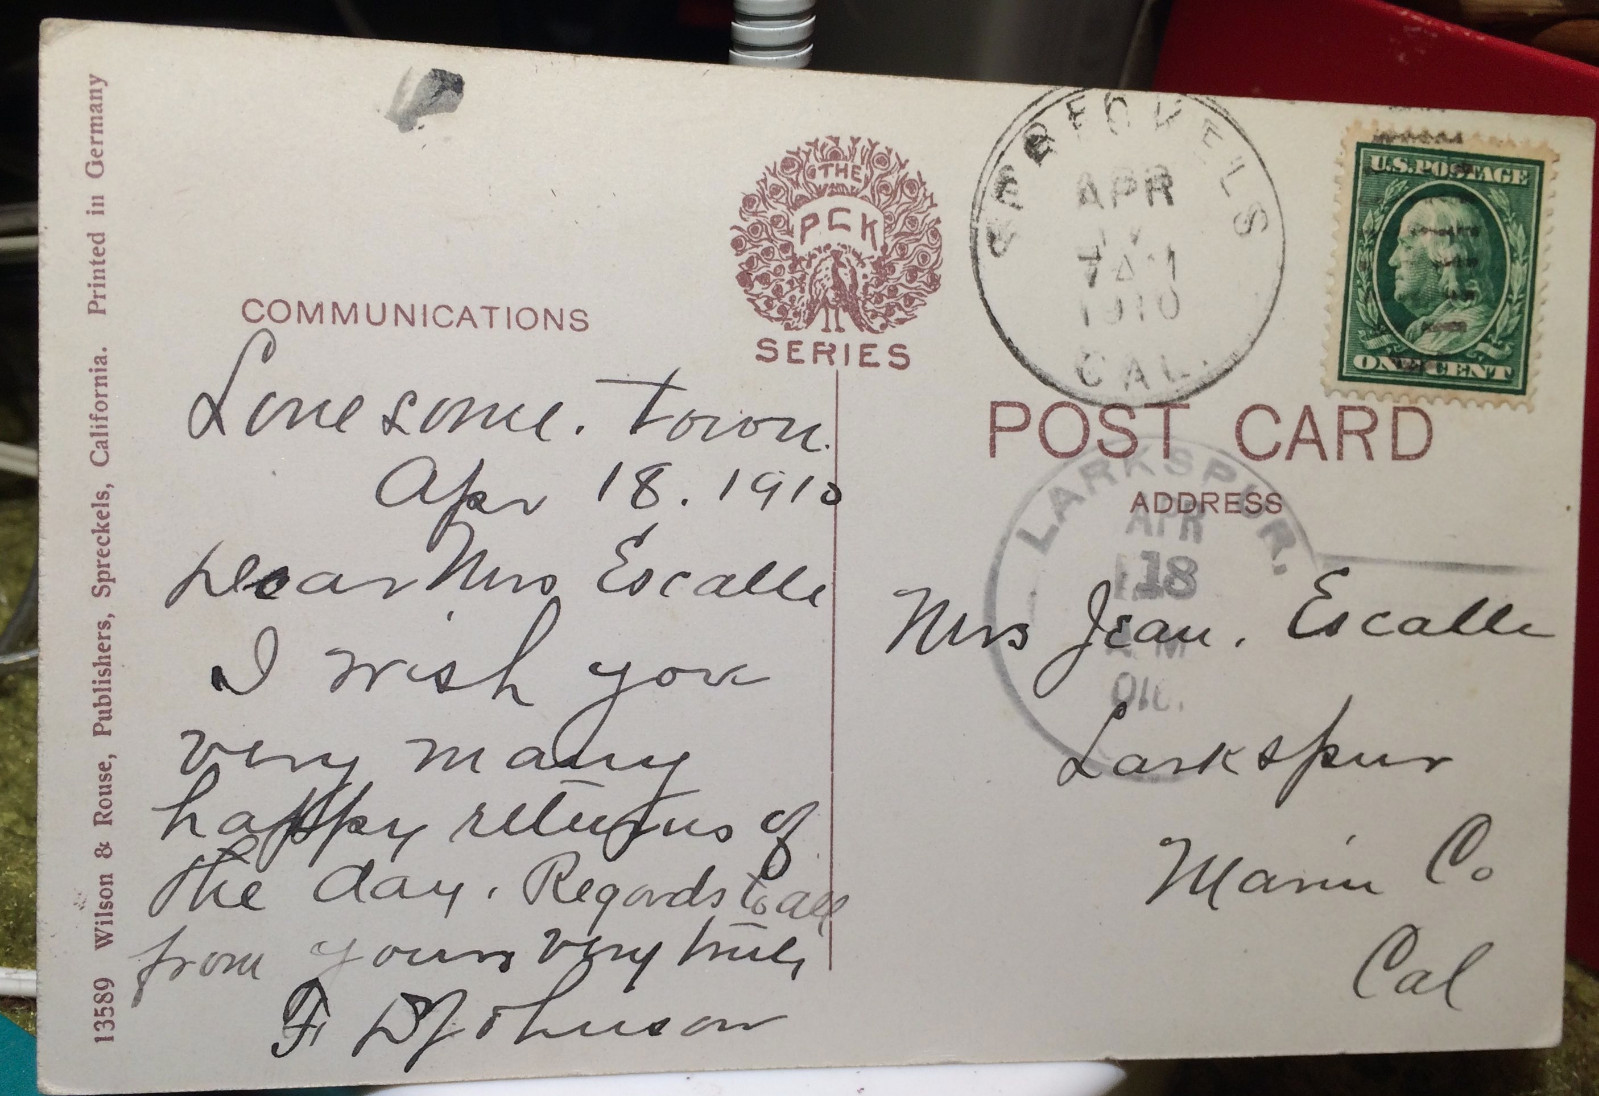 13589 Wilson & Rouse, Publishers, Spreckels, California. Printed in Germany
COMMUNICATIONS
Lonesome. Town.
Apr 18. 1910
Dear Mrs Escalle
I wish you
very many
happy returns of
the day. Regards to all
from yours very truly
F D Johnson
THE
PCK
SERIES
SPRECKELS
APR
7 AM
1910
CAL.
U.S. POSTAGE
ONE CENT
POST CARD
ADDRESS
LARKSPUR.
APR
18
A.M.
1910.
Mrs Jean. Escalle
Larkspur
Marin Co
Cal